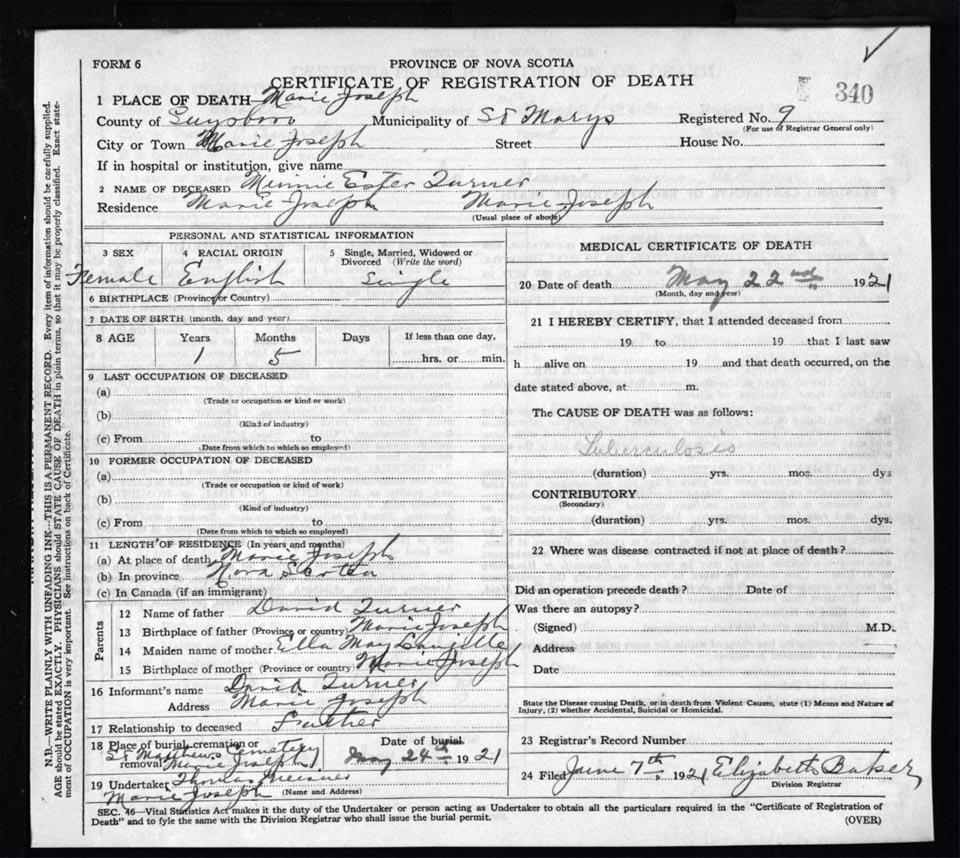 FORM 6
PROVINCE OF NOVA SCOTIA
CERTIFICATE OF REGISTRATION OF DEATH
340
1 PLACE OF DEATH Marie Joseph
County of Guysboro Municipality of St Marys Registered No. 9
(For use of Registrar General only)
City or Town Marie Joseph Street House No.
If in hospital or institution, give name
2 NAME OF DECEASED Minnie Ester Turner
Residence Marie Joseph Marie Joseph
(Usual place of abode)
PERSONAL AND STATISTICAL INFORMATION
3 SEX 4 RACIAL ORIGIN 5 Single, Married, Widowed or Divorced (Write the word)
Female English Single
6 BIRTHPLACE (Province or Country)
7 DATE OF BIRTH (month, day and year)
8 AGE Years Months Days If less than one day,
1 5 hrs. or min.
9 LAST OCCUPATION OF DECEASED
(a)
(Trade or occupation or kind or work)
(b)
(Kind of industry)
(c) From to
(Date from which to which so employed)
10 FORMER OCCUPATION OF DECEASED
(a)
(Trade or occupation or kind of work)
(b)
(Kind of industry)
(c) From to
(Date from which to which so employed)
11 LENGTH OF RESIDENCE (In years and months)
(a) At place of death Marie Joseph
(b) In province Nova Scotia
(c) In Canada (if an immigrant)
Parents
12 Name of father David Turner
13 Birthplace of father (Province or country) Marie Joseph
14 Maiden name of mother Ella May
15 Birthplace of mother (Province or country) Marie Joseph
16 Informant's name David Turner
Address Marie Joseph
17 Relationship to deceased Father
18 Place of burial, cremation or removal St Matthews Cemetery Marie Joseph
Date of burial May 24th 1921
19 Undertaker Thomas
(Name and Address)
Marie Joseph
MEDICAL CERTIFICATE OF DEATH
20 Date of death May 22nd 1921
(Month, day and year)
21 I HEREBY CERTIFY, that I attended deceased from
19 to 19 that I last saw
h alive on 19 and that death occurred, on the
date stated above, at m.
The CAUSE OF DEATH was as follows:
Tuberculosis
(duration) yrs. mos. dys
CONTRIBUTORY
(Secondary)
(duration) yrs. mos. dys.
22 Where was disease contracted if not at place of death?
Did an operation precede death? Date of
Was there an autopsy?
(Signed) M.D.
Address
Date
State the Disease causing Death, or in death from Violent Causes, state (1) Means and Nature of
Injury, (2) whether Accidental, Suicidal or Homicidal.
23 Registrar's Record Number
24 Filed June 7th 1921 Elizabeth Baker
Division Registrar
SEC. 46—Vital Statistics Act makes it the duty of the Undertaker or person acting as Undertaker to obtain all the particulars required in the "Certificate of Registration of
Death" and to fyle the same with the Division Registrar who shall issue the burial permit.
(OVER)
N.B.—WRITE PLAINLY, WITH UNFADING INK—THIS IS A PERMANENT RECORD. Every item of information should be carefully supplied.
AGE should be stated EXACTLY. PHYSICIANS should STATE CAUSE OF DEATH in plain terms, so that it may be properly classified. Exact state-
ment of OCCUPATION is very important. See instructions on back of Certificate.